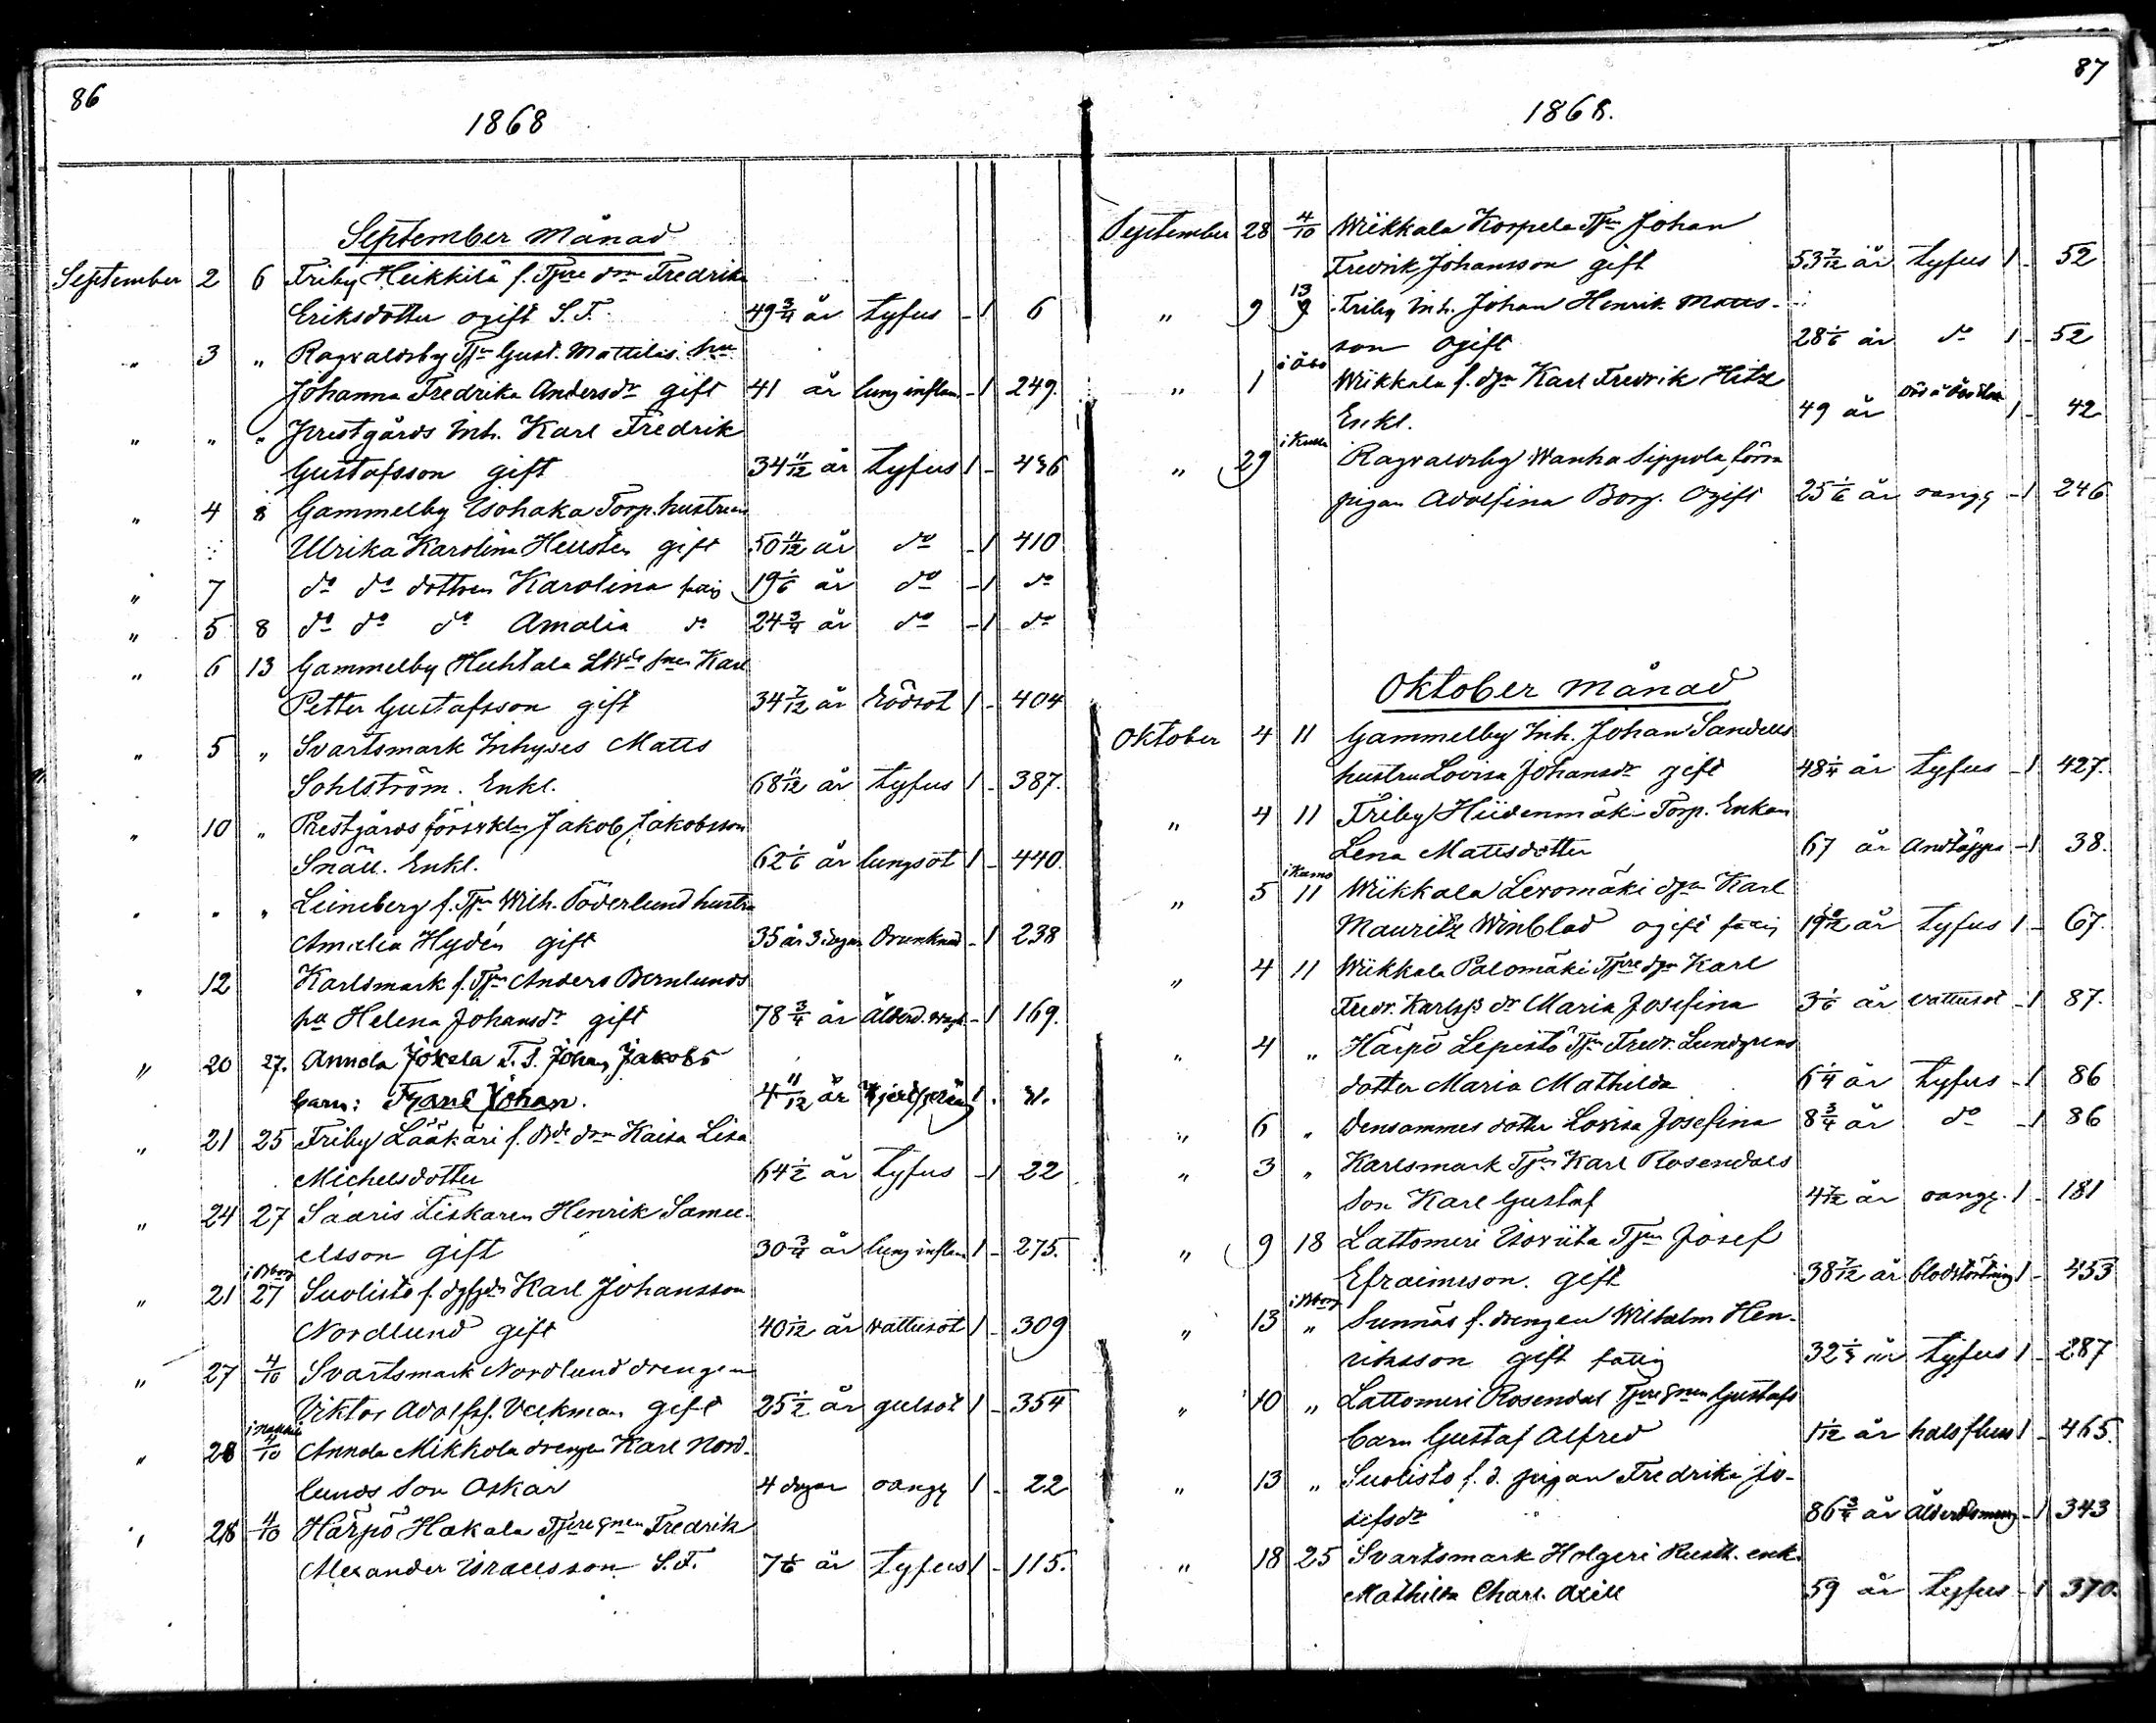 86
1868
September Månad
September 2 6 Friby Heikkilä f. Tjre drn Fredrika
Eriksdotter ogift S. F. 49 3/4 år tyfus - 1 6
" 3 " Ragvaldsby Tjn Gust. Mattilas hu
Johanna Fredrika Andersdr gift 41 år lung inflam. - 1 249.
" " " Prestgårds Inh. Karl Fredrik
Gustafsson gift 34 11/12 år tyfus 1 - 436
" 4 8 Gammelby Isohaka Torp. hustrun
Ulrika Karolina Hellstén gift 50 11/12 år do - 1 410
" 7 do do dottren Karolina 19 1/6 år do - 1 do
" 5 8 do do do Amalia do 24 3/4 år do - 1 do
" 6 13 Gammelby Huhtala Karl
Petter Gustafsson gift 34 7/12 år rödsot 1 - 404
" 5 " Svartsmark Inhyses Matts
Sohlström. Enkl. 68 11/12 år tyfus 1 - 387.
" 10 " Prestgårds Jakob Jakobsson
Snäll. Enkl. 62 1/6 år lungsot 1 - 440.
" " " Leineberg f. Tjn Wilh. Söderlund hustru
Amalia Hydén gift 35 år 3 dagar Drunknad - 1 238
" 12 Karlsmark f. Tjn Anders Bernlunds
hu Helena Johansdr gift 78 3/4 år Ålderd. - 1 169.
" 20 27. Annola Jokela T. S. Johan Jakobs
barn: Frans Johan. 4 11/12 år 1.
" 21 25 Friby Lääkäri f. drn Kaisa Lisa
Michelsdotter 64 1/2 år tyfus - 1 22
" 24 27 Saaris Fiskaren Henrik Samu-
elsson gift 30 3/4 år lung inflam 1 - 275.
i Bborg
" 21 27 Suolisto f. Karl Johansson
Nordlund gift 40 1/12 år vattusot 1 - 309
" 27 4/10 Svartsmark Nordlund drengen
Viktor Adolfss. Veckman gift 25 1/2 år gulsot 1 - 354
i Nakkila
" 28 4/10 Annola Mikkola drengen Karl Nord-
lunds son Oskar 4 dagar oangg 1 - 22
" 28 4/10 Härpö Hakala Fredrik
Alexander Israelsson S. F. 7 1/6 år tyfus 1 - 115.
87
1868.
September 28 4/10 Wiikkala Korpela Tjn Johan
Fredrik Johansson gift 53 7/12 år tyfus 1 - 52
13
" 9 9 Friby Inh. Johan Henrik Matts-
son Ogift 28 1/6 år do 1 - 52
i Åbo
" 1 Wiikkala f. dgn Karl Fredrik Hitz
Enkl. 49 år 1 - 42
i Kulla
" 29 Ragvaldsby Wanha Sippola förra
pigan Adolfina Borg. Ogift 25 1/6 år oangg - 1 246
Oktober Månad
Oktober 4 11 Gammelby Inh. Johan Sandells
hustru Lovisa Johansdr gift 48 1/4 år tyfus - 1 427.
" 4 11 Friby Hiidenmäki Torp. Enkan
Lena Mattsdotter 67 år Andtäppa - 1 38.
i Kumo
" 5 11 Wiikkala Levomäki dgn Karl
Mauritz Winblad ogift fattig 19 år tyfus 1 - 67.
" 4 11 Wiikkala Palomäki Tjre dgn Karl
Fredr. Karlss dr Maria Josefina 3 1/6 år vattusot - 1 87.
" 4 " Härpö Lepistö Tjn Fredr. Lundgrens
dotter Maria Mathilda 6 1/4 år tyfus - 1 86
" 6 " Densammes dotter Lovisa Josefina 8 3/4 år do - 1 86
" 3 " Karlsmark Tjn Karl Rosendals
son Karl Gustaf 4 7/12 år oangg. 1 - 181
" 9 18 Lattomeri Isoviita Tjn Josef
Efraimsson. gift 38 7/12 år blodstörtning 1 - 453
i Bborg
" 13 " Sunnäs f. drengen Wilhelm Hen-
riksson gift fattig 32 år tyfus 1 - 287
" 10 " Lattomeri Rosendal Gustafs
barn Gustaf Alfred 1 1/12 år halsfluss 1 - 465.
" 13 " Suolisto f. d. pigan Fredrika Jo-
sefsdr 86 3/4 år - 1 343
" 18 25 Svartsmark Holgeri Rusth. enk.
Mathilda Charl. 59 år tyfus - 1 370.